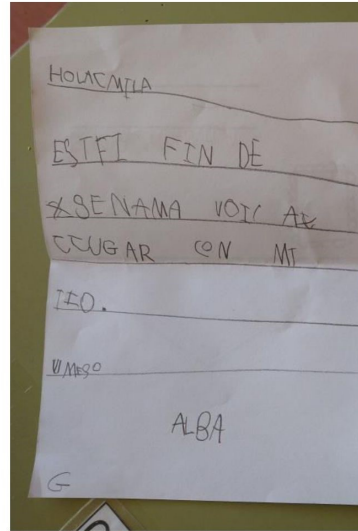 HOLACMILA
ESTFI FIN DE
XSENAMA VOIC AE
CCUGAR CON MI
IIO.
UMESO
ALBA
G